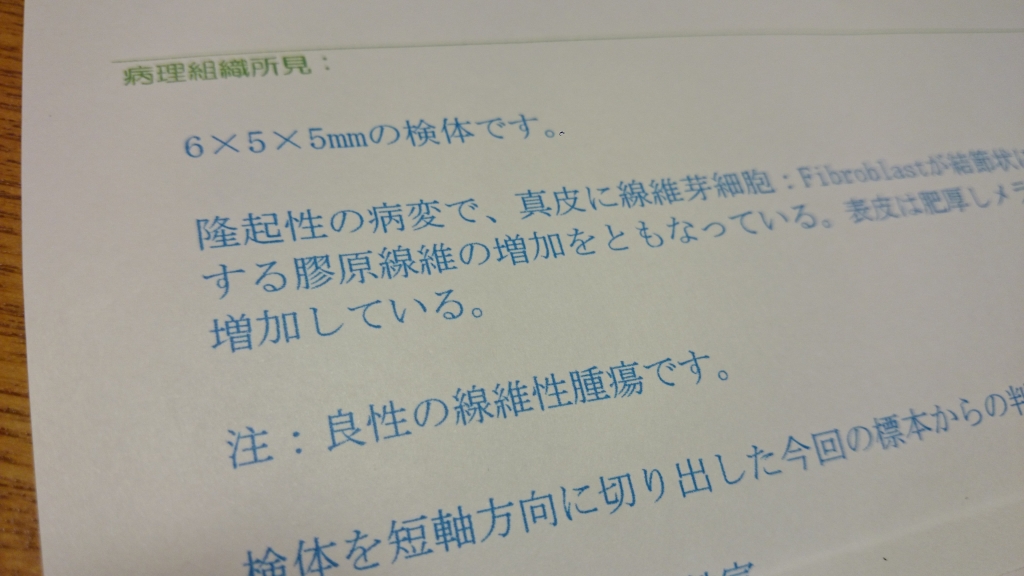 病理組織所見：
6×5×5mmの検体です。
隆起性の病変で、真皮に線維芽細胞：Fibroblastが結節状に
する膠原線維の増加をともなっている。表皮は肥厚しメラ
増加している。
注：良性の線維性腫瘍です。
検体を短軸方向に切り出した今回の標本からの判